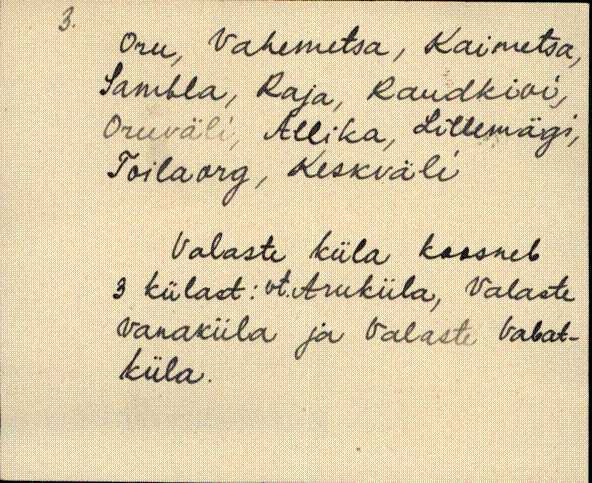 3.
Oru, Vahemetsa, Kaimetsa,
Sambla, Raja, Raudkivi,
Oruväli, Allika, Lillemägi,
Toilaorg, Keskväli
Valaste küla koosneb
3 külast: vt. Aruküla, Valaste
vanaküla ja Valaste Vabat-
küla.